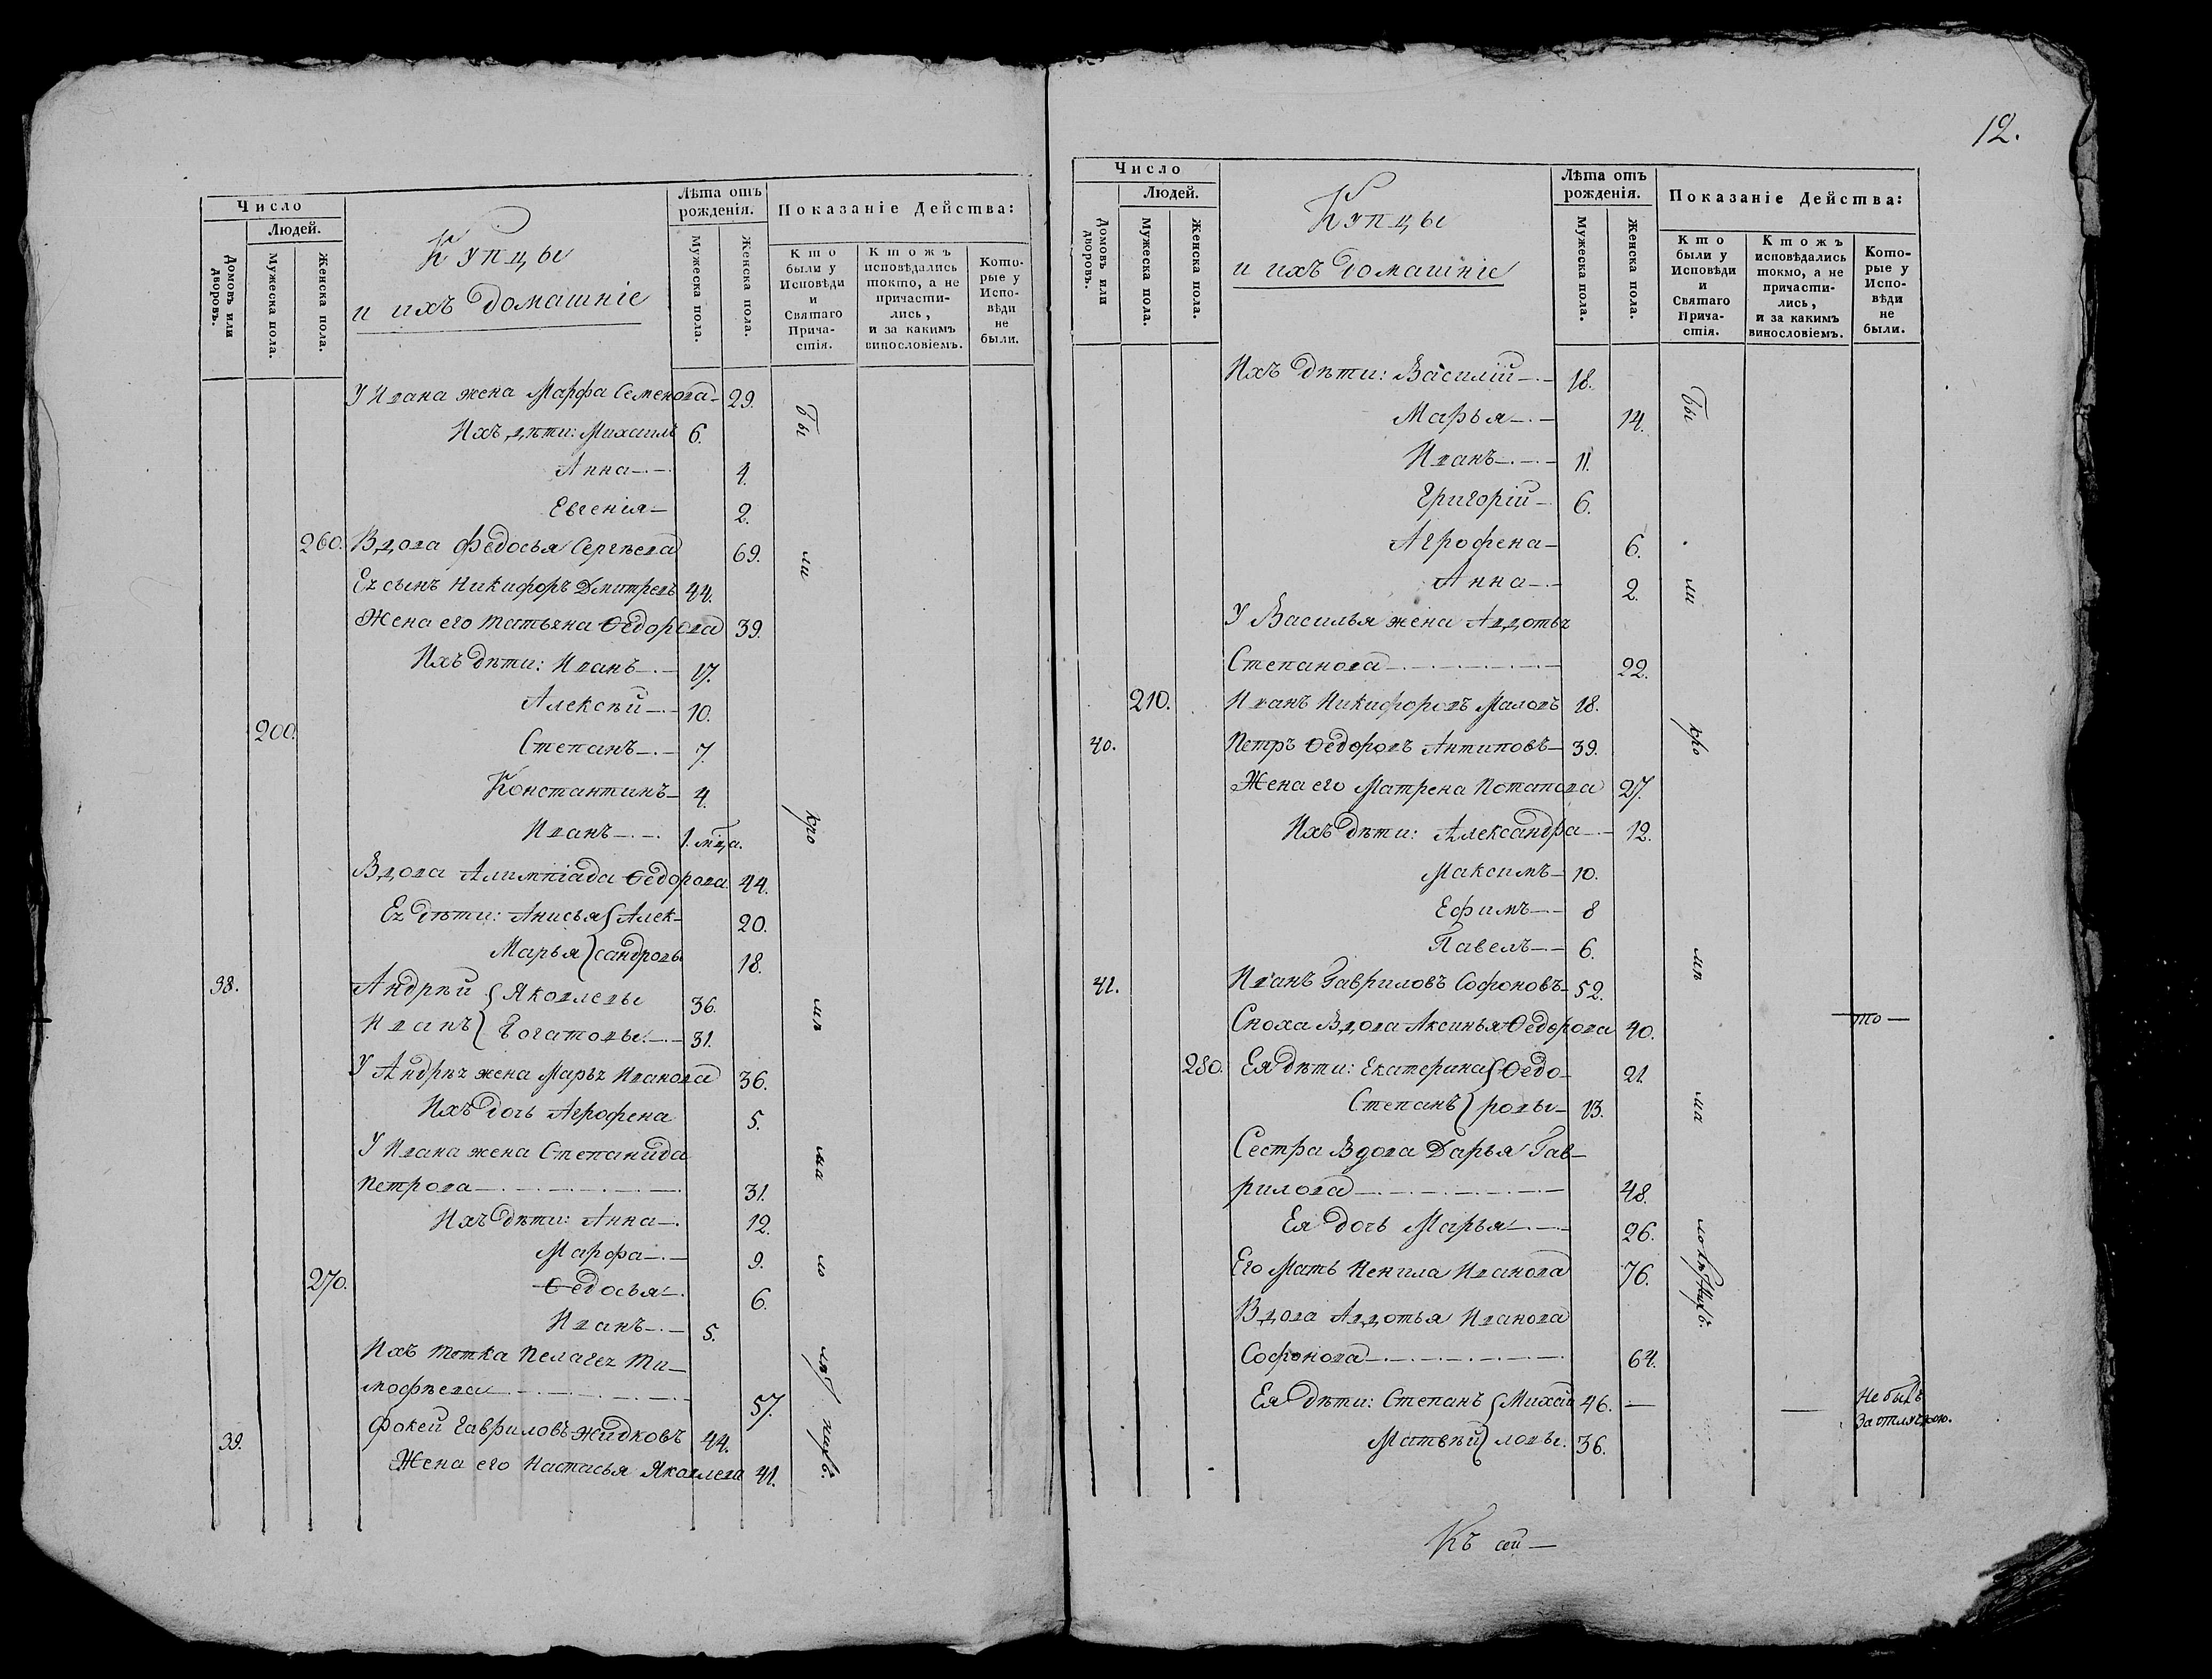 Число
Людей.
Домовъ или дворовъ.
Мужеска пола.
Женска пола.
Купцы
и ихъ домашніе
Лѣта отъ рожденія.
Мужеска пола.
Женска пола.
Показаніе Действа:
Кто были у Исповѣди и Святаго Прича-стія.
Ктожъ исповѣдались токмо, а не причасти-лись, и за какимъ винословіемъ.
Кото-рые у Испо-вѣди не были.
У Ивана жена Марфа Семенова - 29.
Ихъ дѣти: Михаилъ 6.
Анна 4.
Евгенія 2.
260. Вдова Федосья Сергѣева 69.
Ея сынъ Никифоръ Дмитревъ 44.
Жена его Татьяна Ѳедорова 39.
Ихъ дѣти: Иванъ 17.
Алексѣй 10.
200. Степанъ 7.
Константинъ 4.
Иванъ 1. мца.
Вдова Алимпіада Ѳедорова 44.
Ея дѣти: Анисья Алек- 20.
Марья сандровы 18.
38. Андрѣй Яковлевы 36.
Иванъ Богатовы 31.
У Андрѣя жена Марья Иванова 36.
Ихъ дочь Агрофена 5.
У Ивана жена Степанида
Петрова 31.
Ихъ дѣти: Анна 12.
Марфа 9.
270. Ѳедосья 6.
Иванъ 5.
Ихъ тетка Пелагея Ти-
мофѣева 57.
39. Фокей Гавриловъ Жидковъ 44.
Жена его Настасья Яковлева 41.
бы
ли
кро
мѣ
ма
ло
лѣт
нихъ.
12.
Число
Людей.
Домовъ или дворовъ.
Мужеска пола.
Женска пола.
Купцы
и ихъ домашніе
Лѣта отъ рожденія.
Мужеска пола.
Женска пола.
Показаніе Действа:
Кто были у Исповѣди и Святаго Прича-стія.
Ктожъ исповѣдались токмо, а не причасти-лись, и за какимъ винословіемъ.
Кото-рые у Испо-вѣди не были.
Ихъ дѣти: Василій 18.
Марья 14.
Иванъ 11.
Григорій 6.
Агрофена 6.
Анна 2.
У Василья жена Авдотья
Степанова 22.
210. Иванъ Никифоровъ Маловъ 18.
40. Петръ Ѳедоровъ Антиповъ 39.
Жена его Матрена Потапова 27.
Ихъ дѣти: Александра 12.
Максимъ 10.
Ефимъ 8
Павелъ 6.
41. Иванъ Гавриловъ Софоновъ 52.
Сноха Вдова Аксинья Ѳедорова 40. то
280. Ея дѣти: Екатерина Ѳедо- 21.
Степанъ ровы 13.
Сестра Вдова Дарья Гав-
рилова 48.
Ея дочь Марья 26.
Его Мать Ненила Иванова 76.
Вдова Авдотья Иванова
Софонова 64.
Ея дѣти: Степанъ Михай 46. Не былъ
За отлучкою.
Матвѣй ловы. 36.
бы
ли
кро
мѣ
ма
лолѣтнихъ.
Къ ой